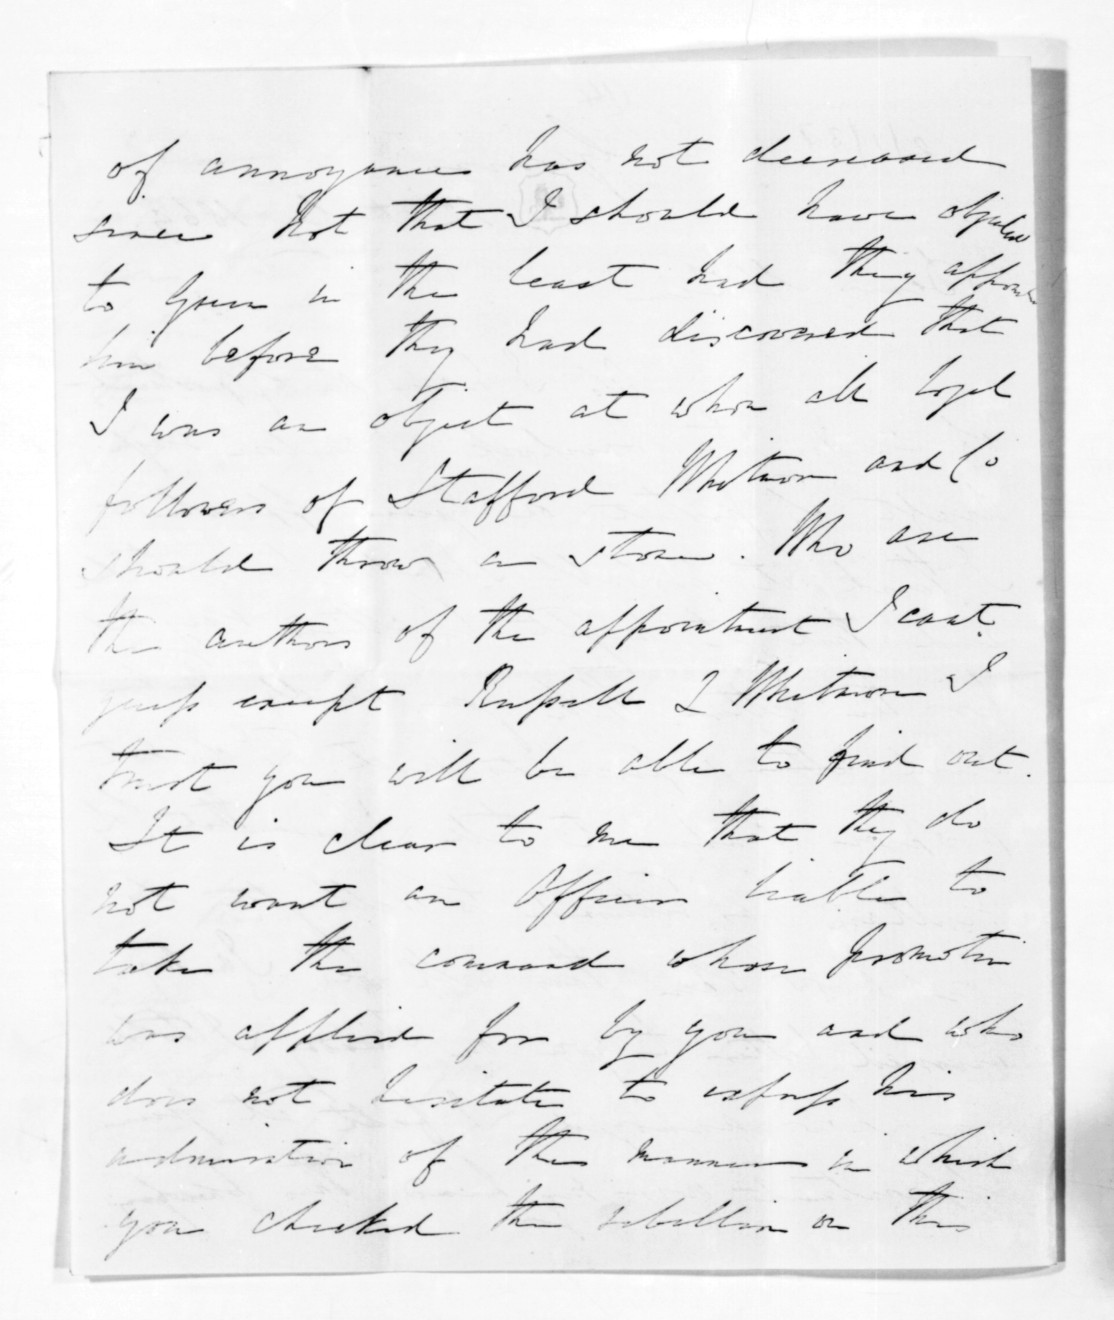 of annoyance has not decreased
since Not that I should have objected
to Green in the least had they appoint
him before they had discovered that
I was an object at whom all loyal
followers of Stafford Whitmore and Co
should throw a stone. Who are
the authors of the appointment I cant
guess except Russell & Whitmore I
trust you will be able to find out.
It is clear to me that they do
not want an Officer liable to
take the command whose promotion
was applied for by you and who
does not hesitate to express his
admiration of the manner in which
you checked the rebellion on this